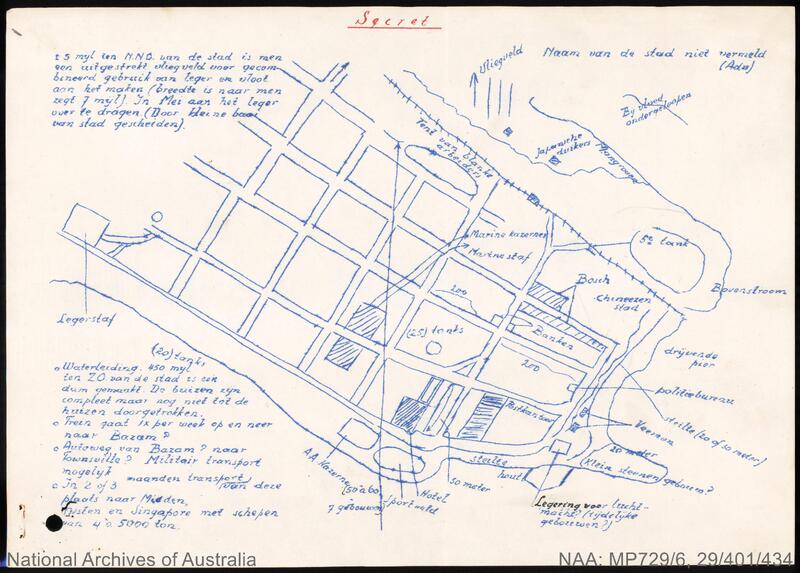 Secret
± 5 myl ten N.N.O. van de stad is men
een uitgestrekt vliegveld voor gecom-
bineerd gebruik van leger en vloot
aan het maken (breedte is naar men
zegt 7 myl). In Mei aan het leger
over te dragen (Door kleine baai
van stad gescheiden).
Naam van de stad niet vermeld
(Adu)
Vliegveld
By vloed
ondergeloopen
Japansche
duikers
Mangroven
Tent van blanke
arbeiders
Marine kazerne
Marine staf
5e tank
Bovenstroom
Bosch
Chineezen
stad
200
(25) tanks
Banken
200
drijvende
pier
politiebureau
Postkantoor
steilte (20 of 30 meter)
Veeren
20 meter
(Klein steenen gebouw?
Legerstaf
(20) tank,
Waterleiding. 450 myl
ten ZO. van de stad is een
dam gemaakt. De buizen zyn
compleet maar nog niet tot de
huizen doorgetrokken.
Trein gaat 1x per week op en neer
naar Bazam?
Autoweg van Bazam? naar
Townsville? Militair transport
mogelyk
In 2 of 3 maanden transport van deze
plaats naar Midden,
Oosten en Singapore met schepen
van 4 à 5000 ton.
A.A. Kazerne
(50 à 60
7 gebouwen)
sportveld
Hotel
30 meter
steilte
hout
Legering voor lucht-
macht? (tijdelyke
gebouwen?)
National Archives of Australia
NAA: MP729/6, 29/401/434